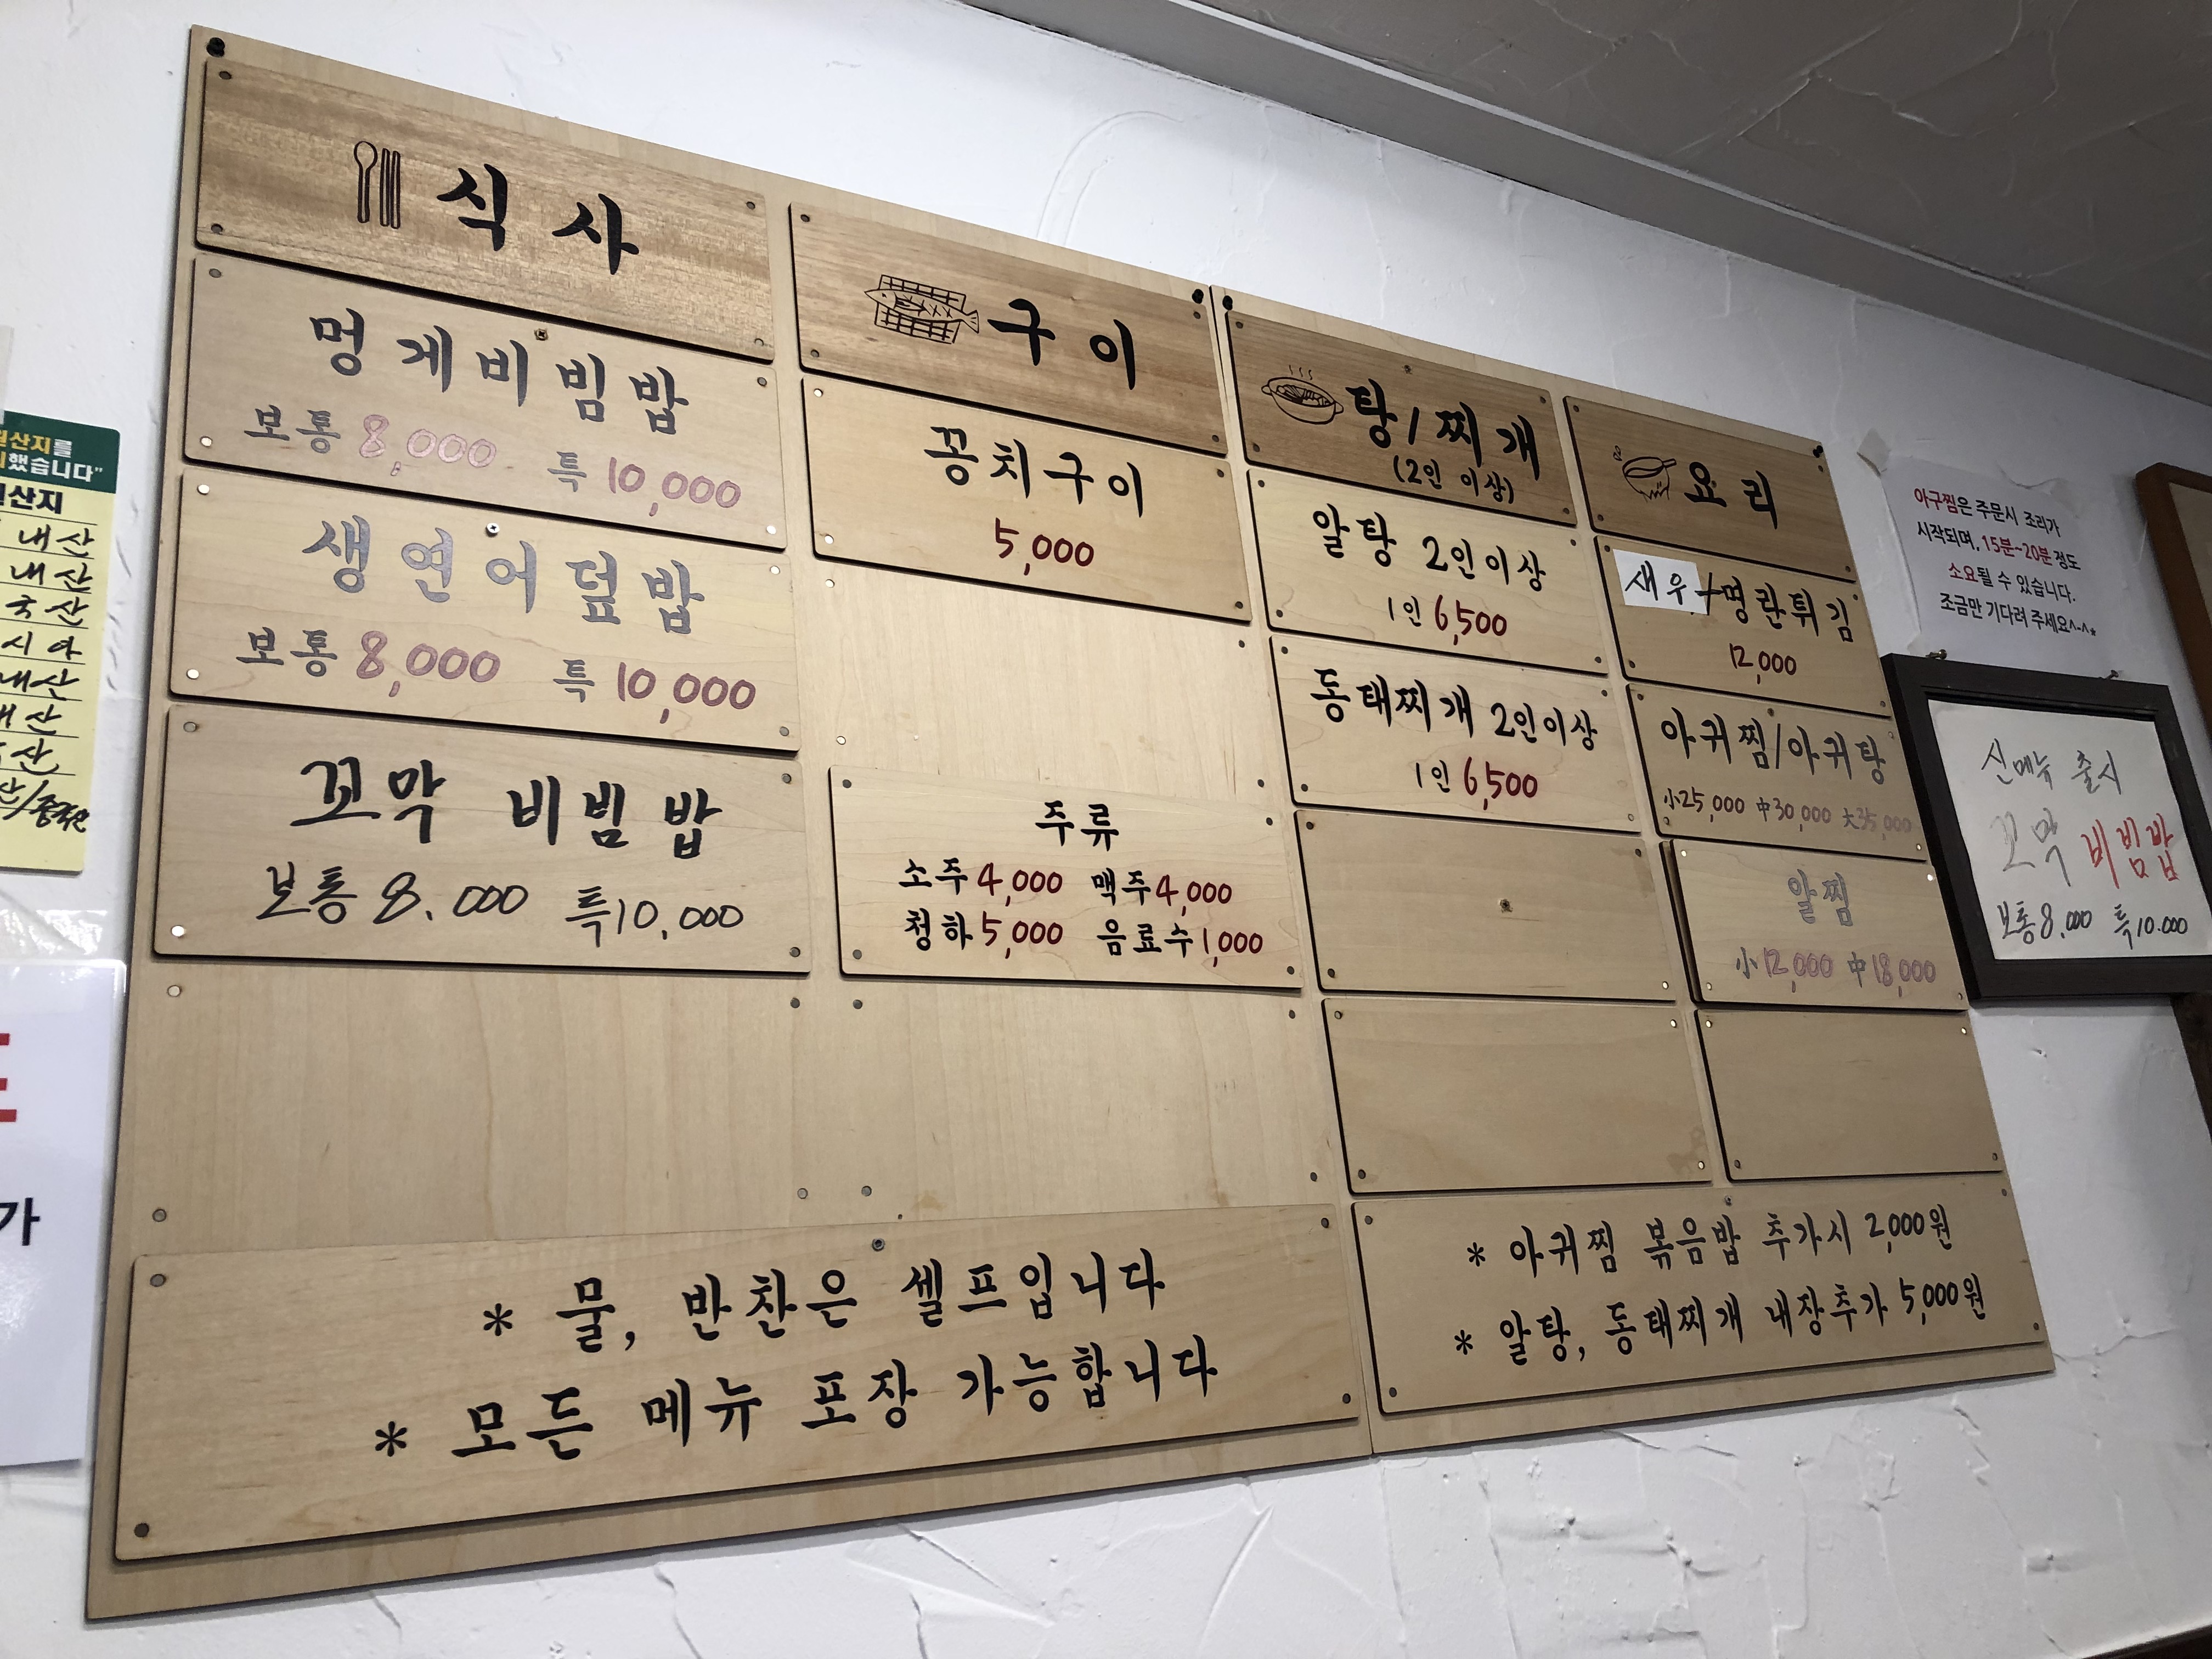 식사
멍게비빔밥
보통 8,000 특 10,000
생연어덮밥
보통 8,000 특 10,000
꼬막 비빔밥
보통 8.000 특 10.000
구이
꽁치구이
5,000
주류
소주 4,000 맥주 4,000
청하 5,000 음료수 1,000
탕/찌개
(2인 이상)
알탕 2인이상
1인 6,500
동태찌개 2인이상
1인 6,500
요리
새우+명란튀김
12,000
아귀찜/아귀탕
小25,000 中30,000 大35,000
알찜
小12,000 中18,000
* 물, 반찬은 셀프입니다
* 모든 메뉴 포장 가능합니다
* 아귀찜 볶음밥 추가시 2,000원
* 알탕, 동태찌개 내장추가 5,000원
아구찜은 주문시 조리가
시작되며, 15분~20분 정도
소요될 수 있습니다.
조금만 기다려 주세요^-^*
신메뉴 출시
꼬막 비빔밥
보통 8.000 특 10.000
원산지를
했습니다"
산지
내산
내산
국산
시아
내산
내산
산
산/중국산
가